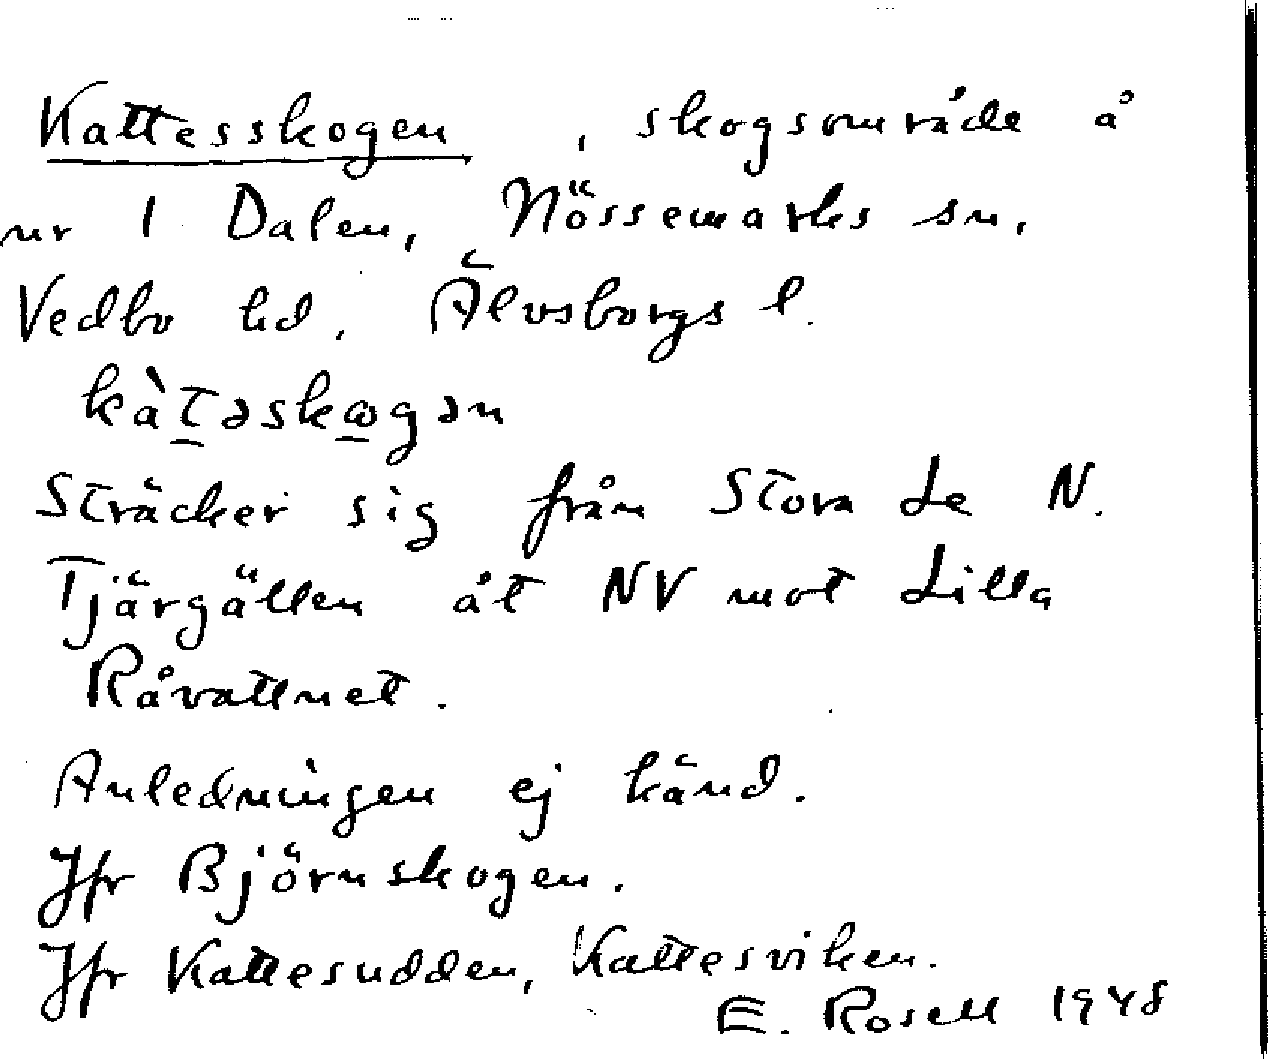 Kattesskogen, skogsområde å
nr 1 Dalen, Nössemarks sn,
Vedbo hd, Älvsborgs l.
kàt̠əskω̠gən
Sträcker sig från Stora Le N.
Tjärgällen åt NV mot Lilla
Råvattnet.
Anledningen ej känd.
Jfr Björnskogen.
Jfr Kattesudden, Kattesviken.
E. Rosell 1948